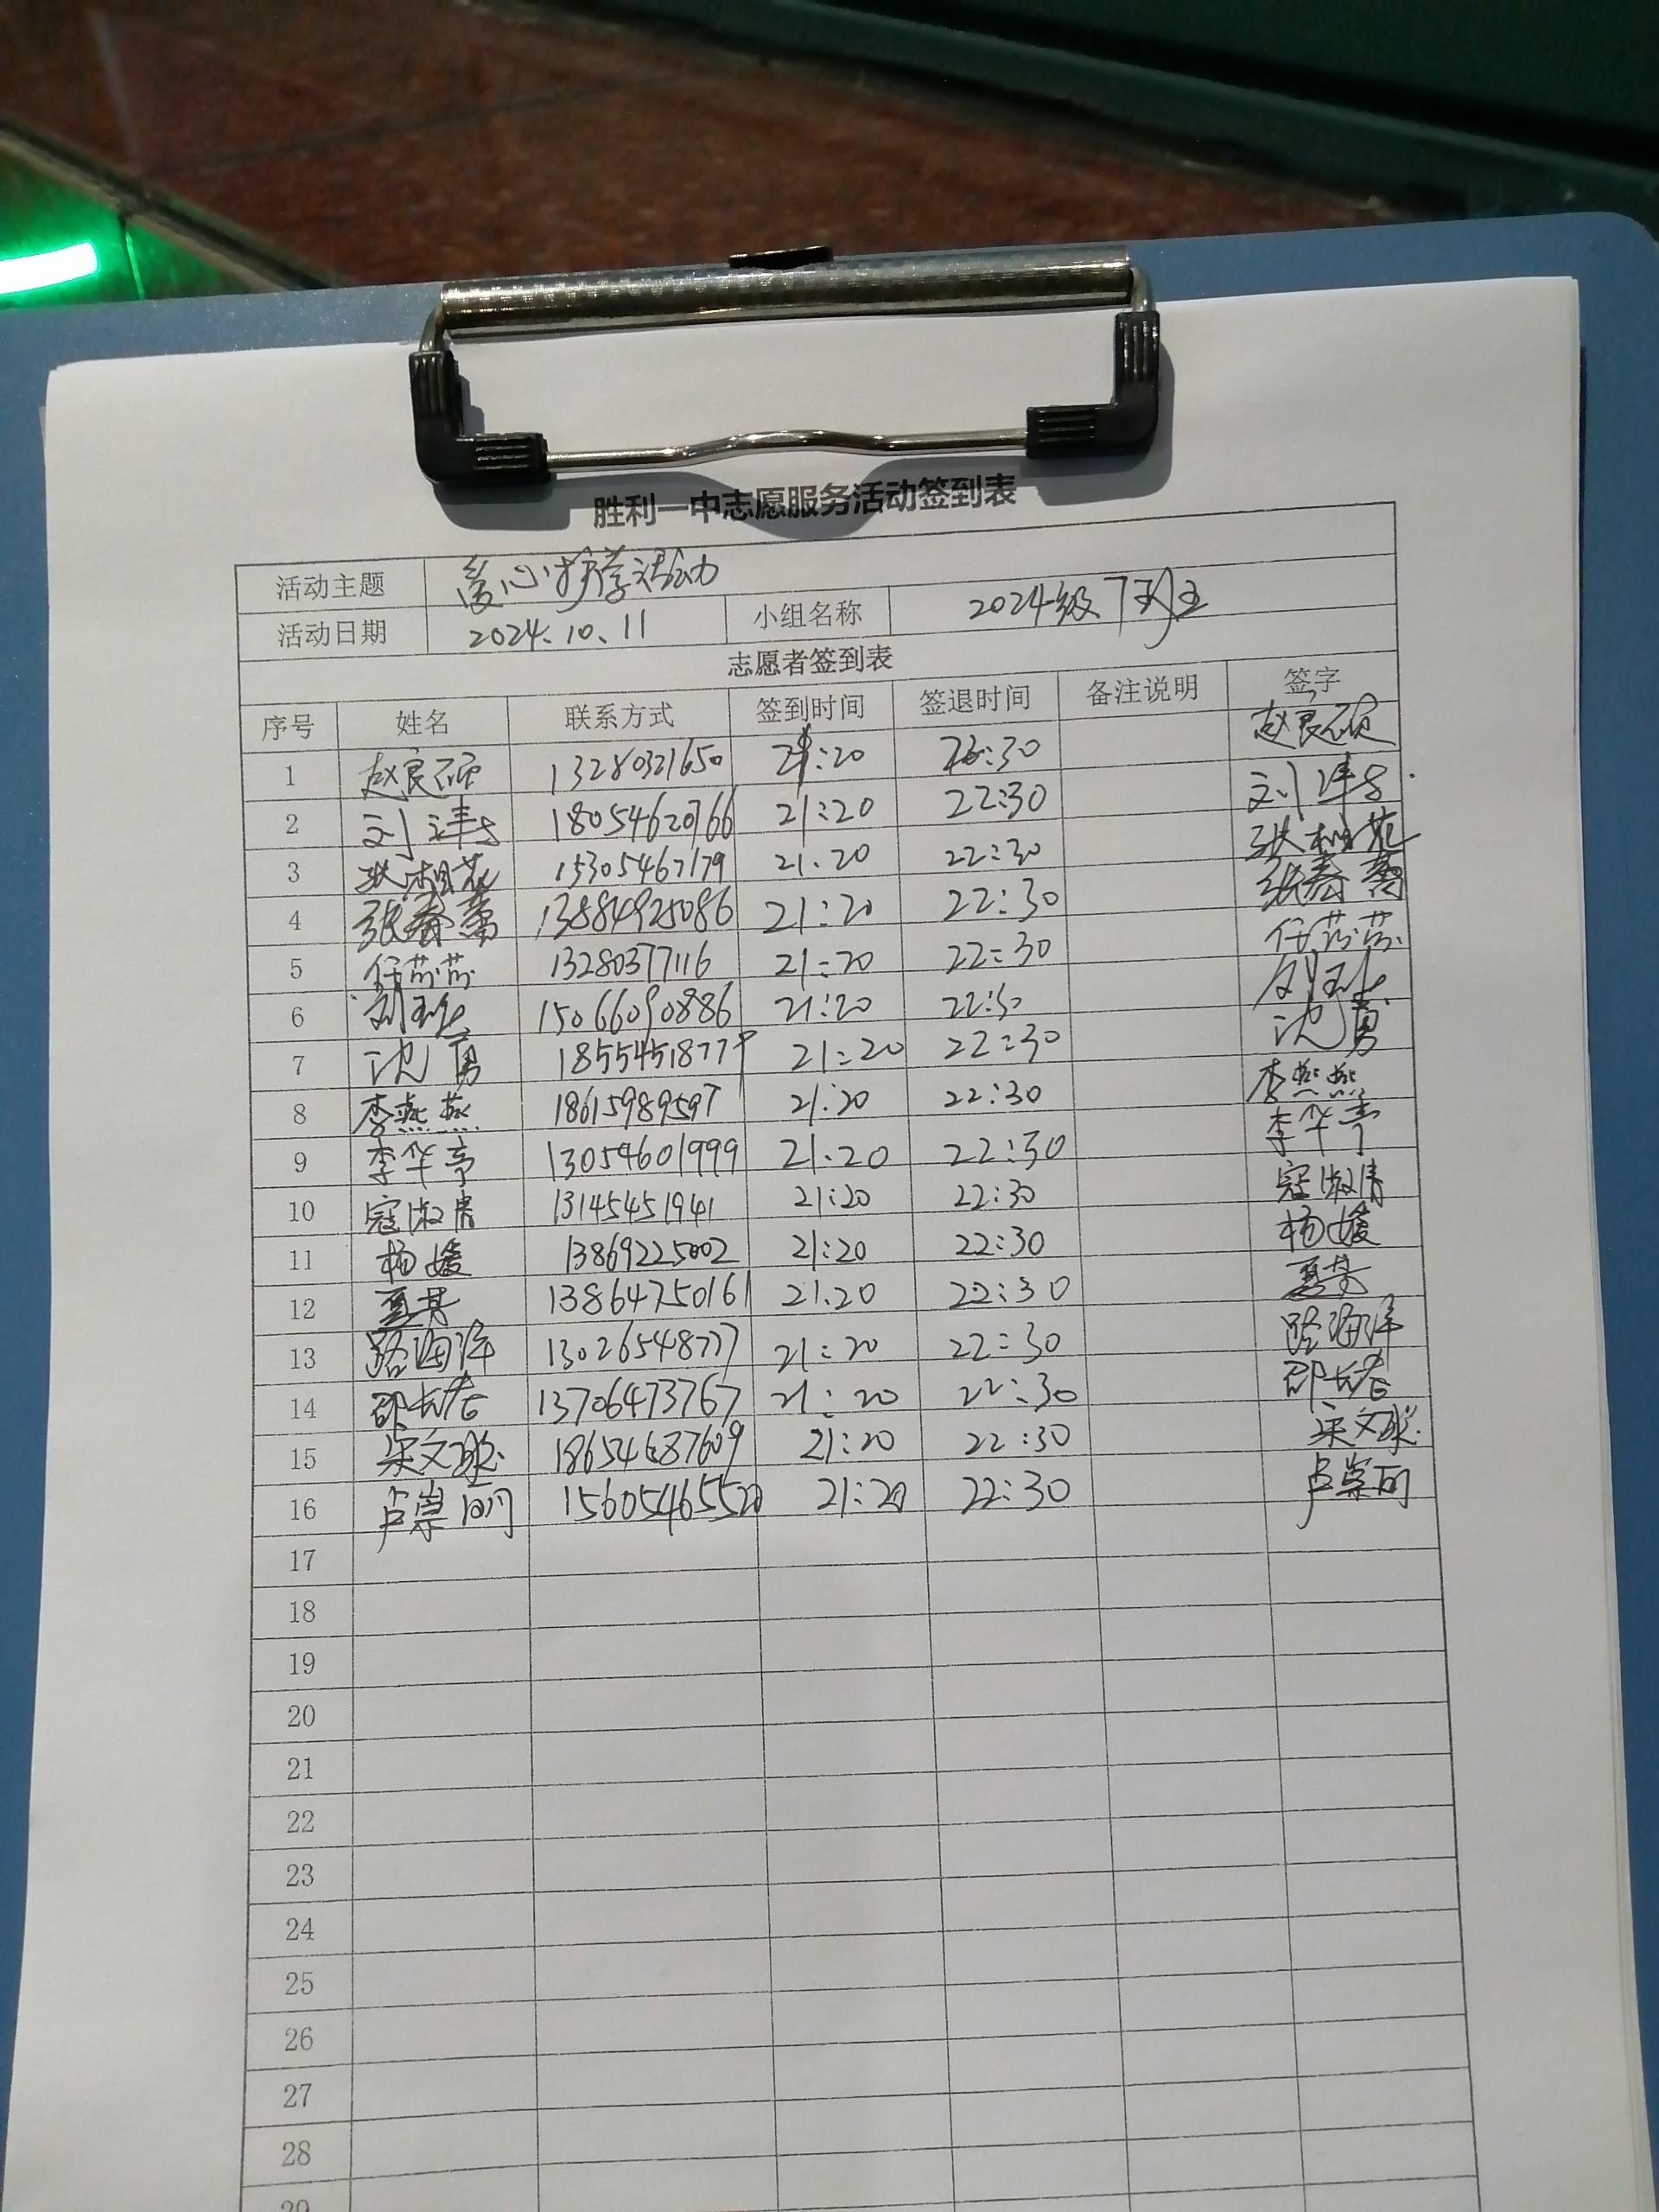 胜利一中志愿服务活动签到表
活动主题 爱心护学活动
活动日期 2024.10.11 小组名称 2024级7班
志愿者签到表
序号 姓名 联系方式 签到时间 签退时间 备注说明 签字
1 赵良硕 13280321650 21:20 :30 赵良硕
2 刘 18054620766 21:20 22:30 刘
3 张相花 15305467179 21:20 22:30 张相花
4 张春蕾 13884925086 21:20 22:30 张春蕾
5 任茹茹 13280377116 21:20 22:30 任茹茹
6 刘 15066090886 21:20 22:30 刘
7 沈勇 21:20 22:30 沈勇
8 李燕燕 18615989597 21:20 22:30 李燕燕
9 李华亭 13054601999 21:20 22:30 李华亭
10 寇淑倩 13145451941 21:20 22:30 寇淑倩
11 杨媛 13869225002 21:20 22:30 杨媛
12 夏某 13864750161 21:20 22:30 夏某
13 路海洋 13026548777 21:20 22:30 路海洋
14 邵长 13706473767 21:20 22:30 邵长
15 宋文 18654687609 21:20 22:30 宋文
16 卢崇丽 15605465520 21:20 22:30 卢崇丽
17
18
19
20
21
22
23
24
25
26
27
28
29